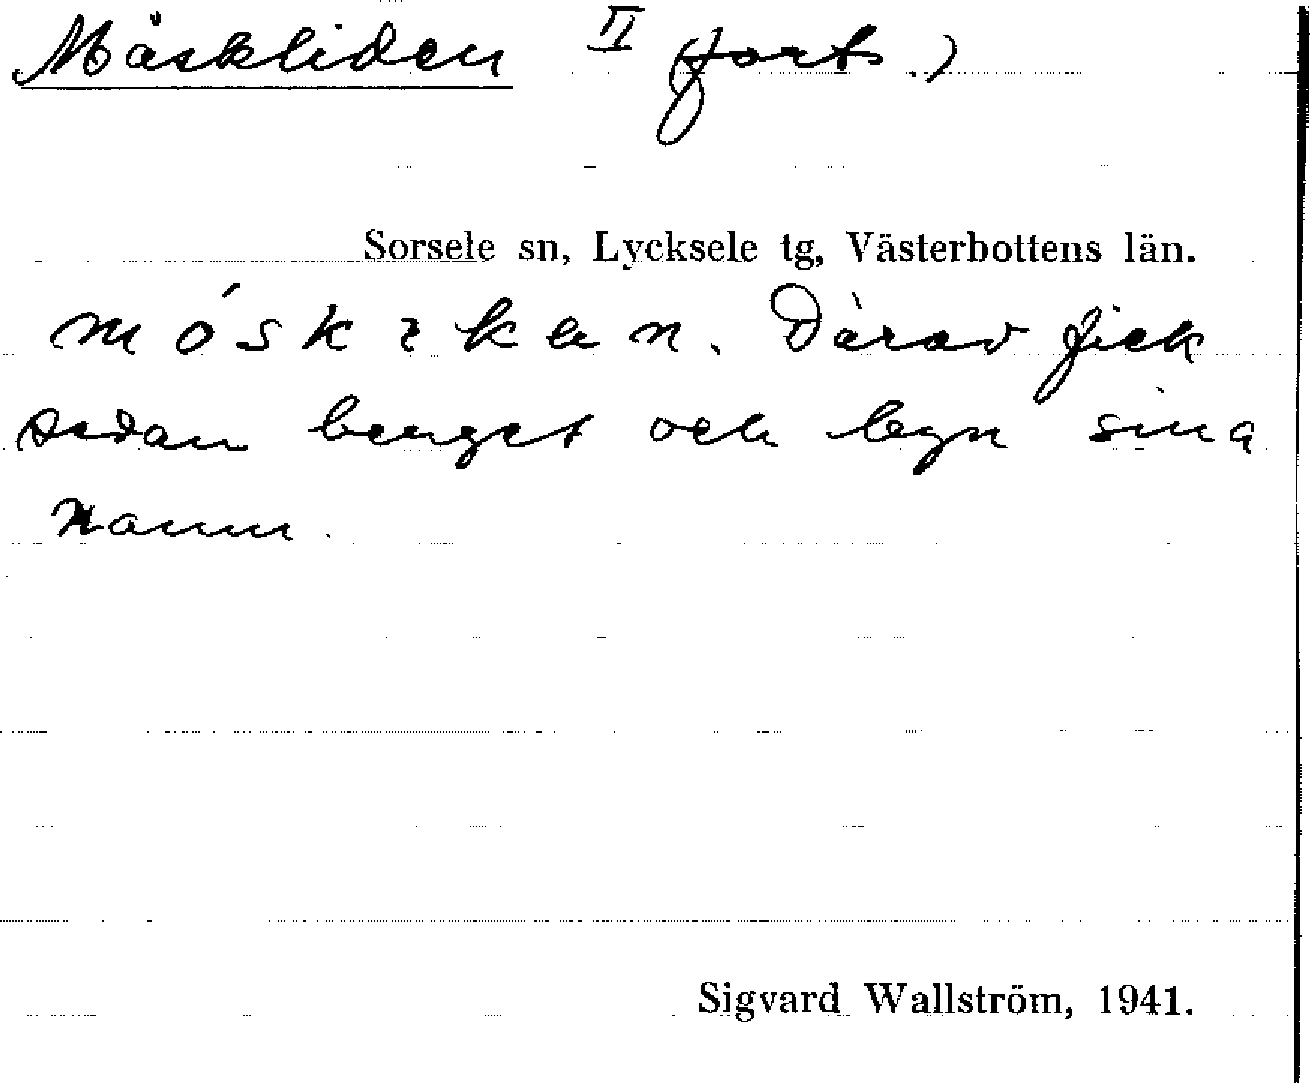 Mäskliden II (forts.)
Sorsele sn, Lycksele tg, Västerbottens län.
Därav fick
sedan berget och byn sina
namn.
Sigvard Wallström, 1941.